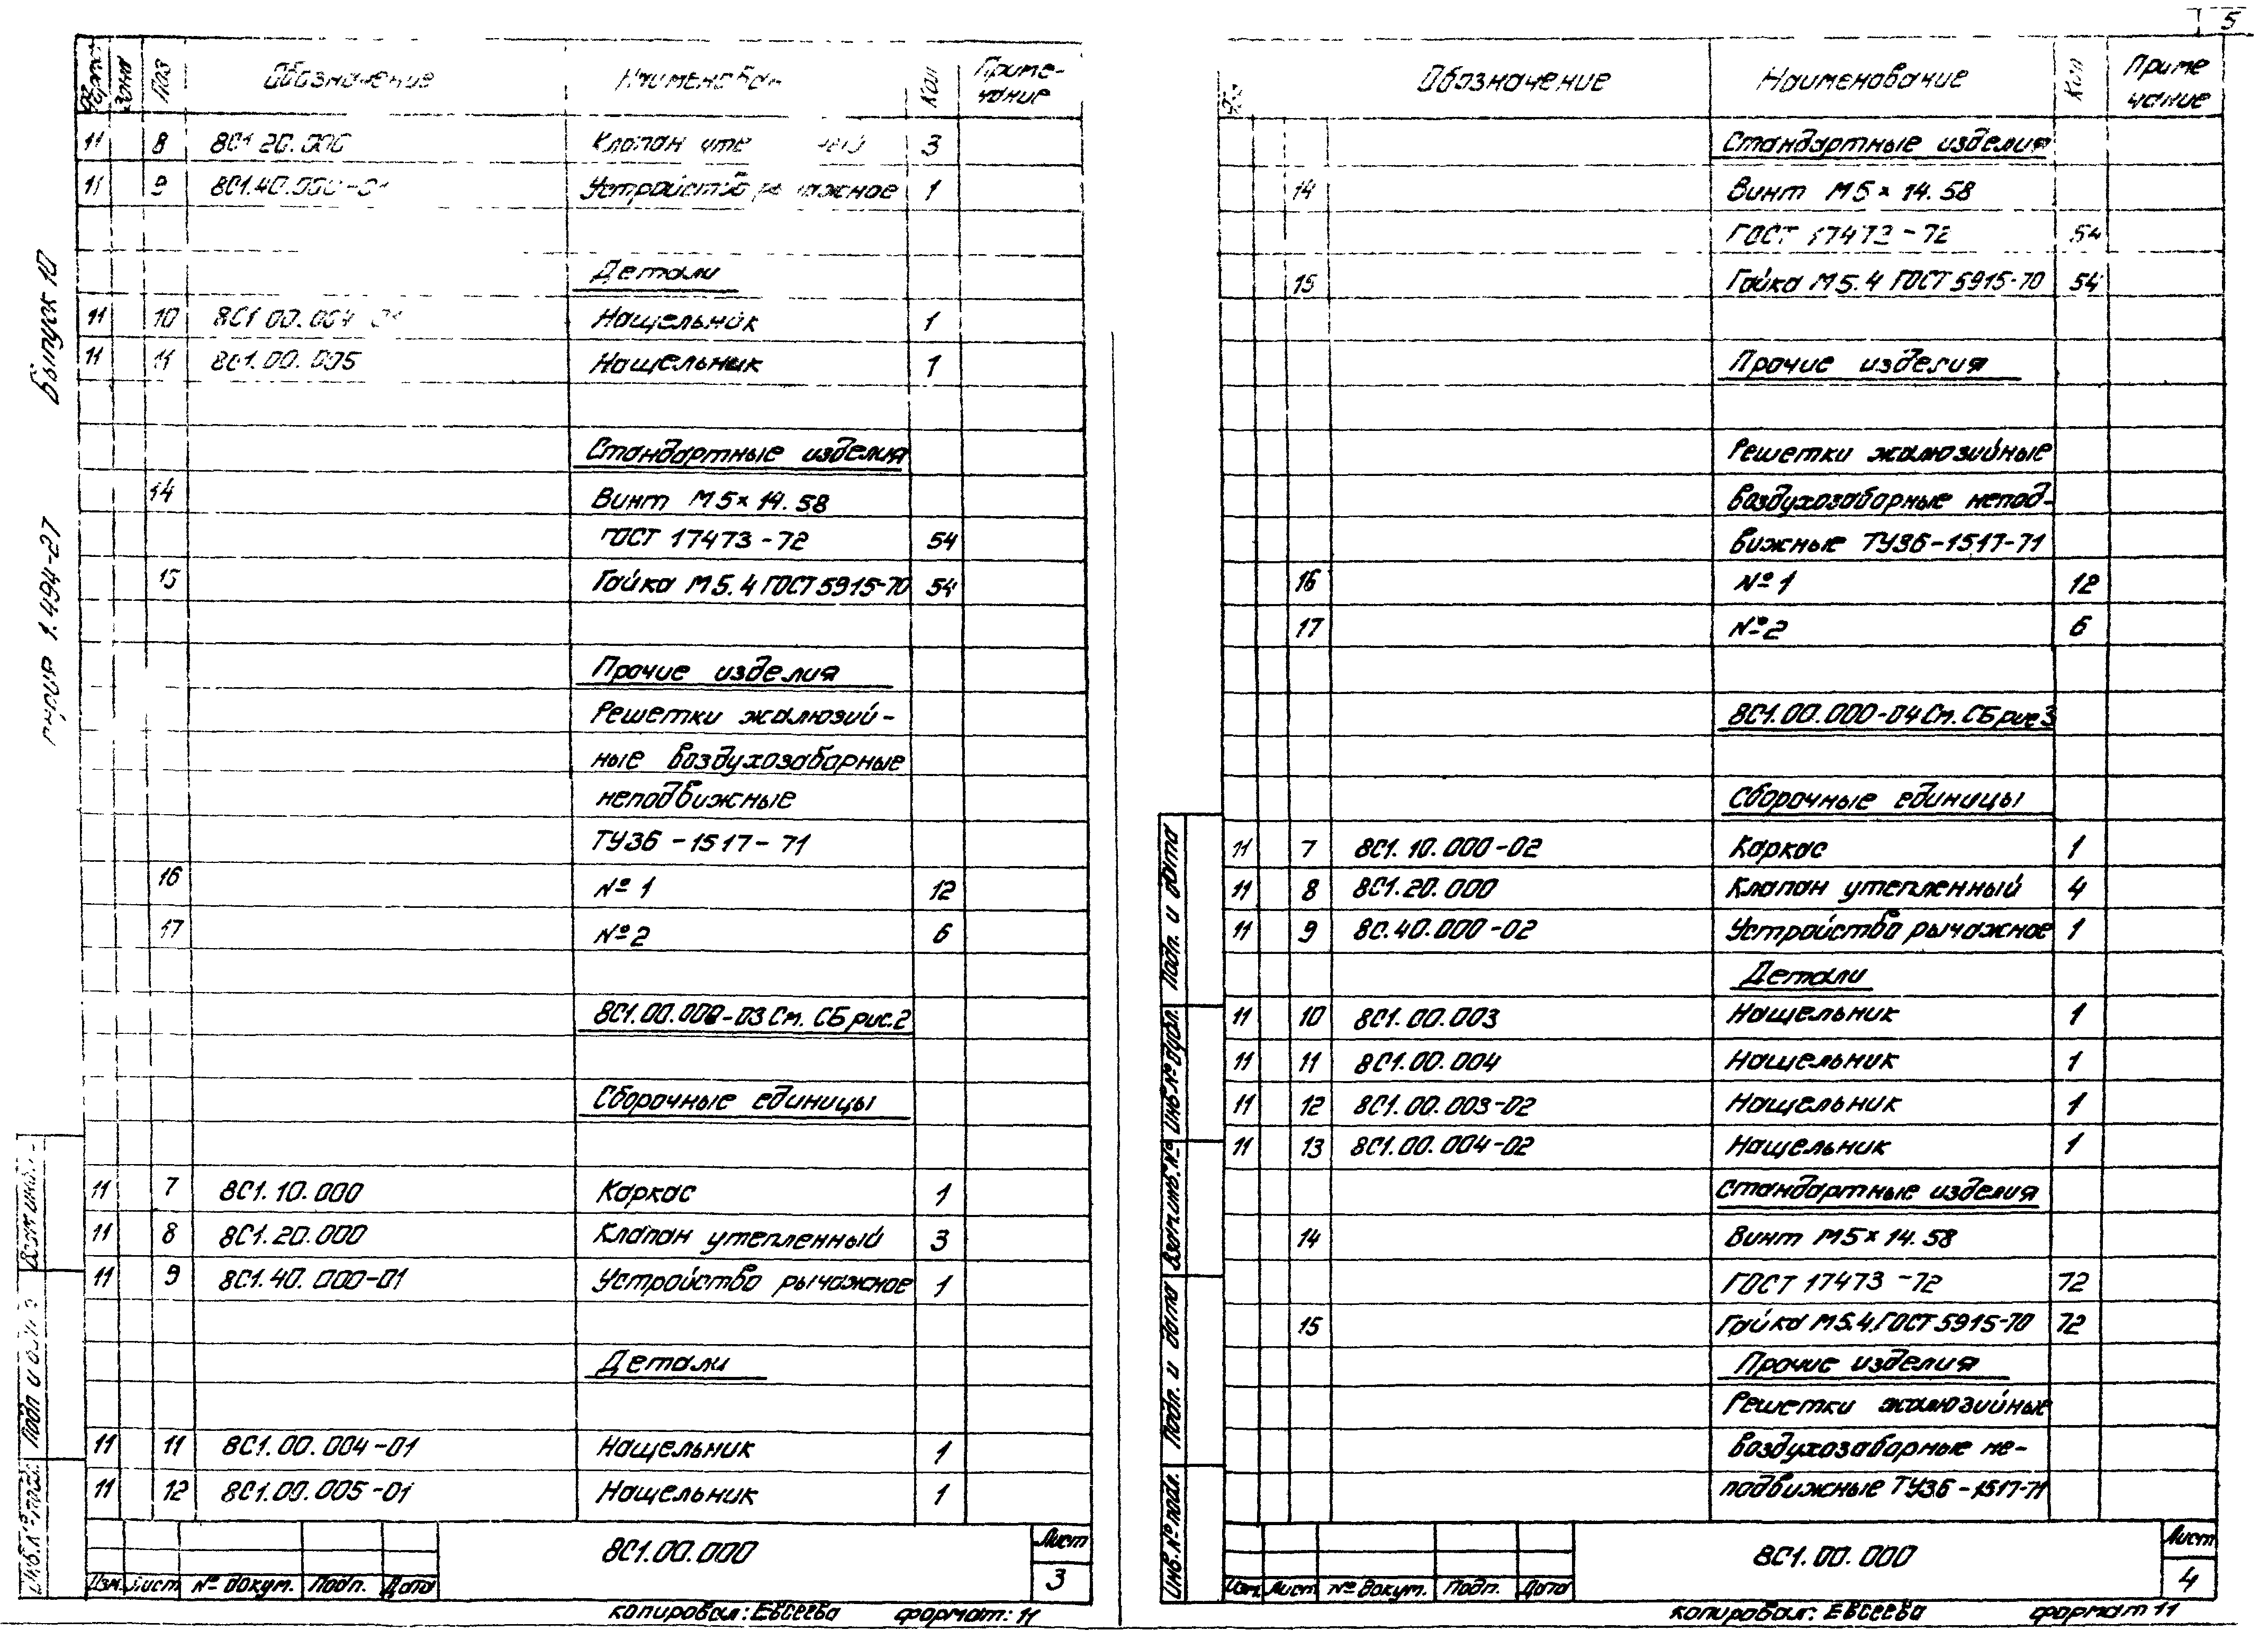 5
Выпуск 10
серия 1.494-27
Формат Зона Поз Обозначение Наименован Кол Приме-
чание
11 8 8С1.20.000 Клапан уте ный 3
11 9 8С1.40.000-01 Устройство рычажное 1
Детали
11 10 8С1.00.004-01 Нащельник 1
11 11 8С1.00.005 Нащельник 1
Стандартные изделия
14 Винт М5×14.58
ГОСТ 17473-72 54
15 Гайка М5.4 ГОСТ 5915-70 54
Прочие изделия
Решетки жалюзий-
ные воздухозаборные
неподвижные
ТУ36-1517-71
16 №1 12
17 №2 6
8С1.00.000-03 См. СБ рис.2
Сборочные единицы
11 7 8С1.10.000 Каркас 1
11 8 8С1.20.000 Клапан утепленный 3
11 9 8С1.40.000-01 Устройство рычажное 1
Детали
11 11 8С1.00.004-01 Нащельник 1
11 12 8С1.00.005-01 Нащельник 1
Взам инв.
Подп и дата
Инв.№ подл.
8С1.00.000
Лист
3
Изм. Лист № докум. Подп. Дата
копировал: Евсеева формат: 11
Обозначение Наименование Кол Приме
чание
Стандартные изделия
14 Винт М5×14.58
ГОСТ 17473-72 54
15 Гайка М5.4 ГОСТ 5915-70 54
Прочие изделия
Решетки жалюзийные
воздухозаборные непод-
вижные ТУ36-1517-71
16 №1 12
17 №2 6
8С1.00.000-04 См. СБ рис 3
Сборочные единицы
11 7 8С1.10.000-02 Каркас 1
11 8 8С1.20.000 Клапан утепленный 4
11 9 8С.40.000-02 Устройство рычажное 1
Детали
11 10 8С1.00.003 Нащельник 1
11 11 8С1.00.004 Нащельник 1
11 12 8С1.00.003-02 Нащельник 1
11 13 8С1.00.004-02 Нащельник 1
Стандартные изделия
14 Винт М5×14.58
ГОСТ 17473-72 72
15 Гайка М5.4.ГОСТ 5915-70 72
Прочие изделия
Решетки жалюзийные
воздухозаборные не-
подвижные ТУ36-1517-71
Подп. и дата
Инв.№ дубл.
Взам.инв.№
Подп. и дата
Инв.№ подл.
8С1.00.000
Лист
4
Изм. Лист № докум. Подп. Дата
копировал: Евсеева формат 11